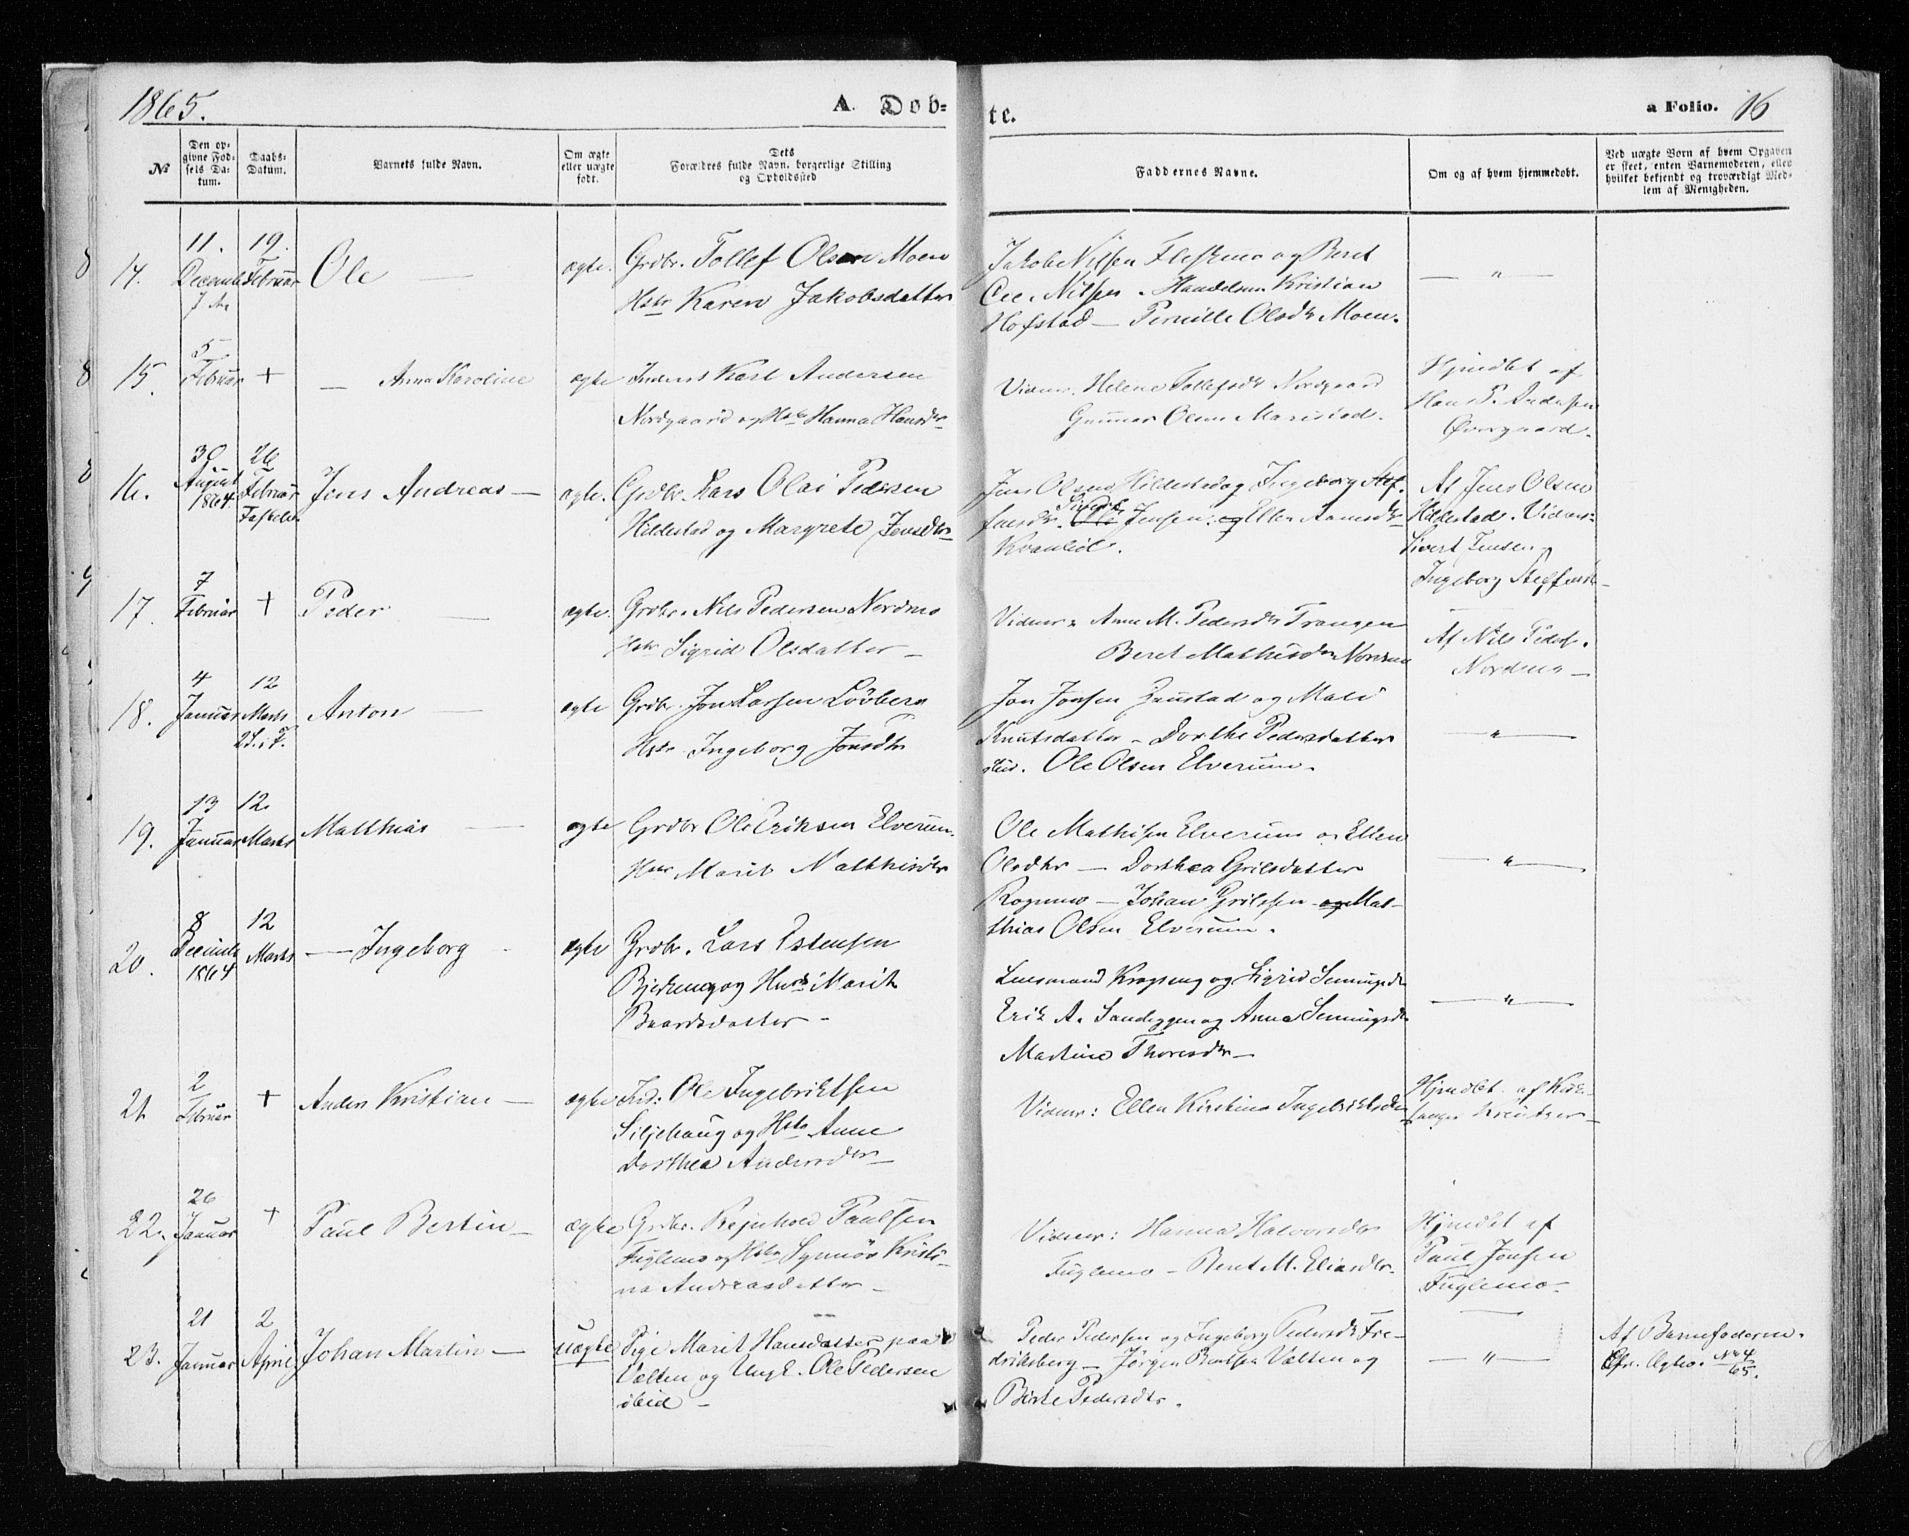 1865.
A. Døb-
te.
a Folio. 16
№
Den op-
givne Fød-
sels Da-
tum.
Daabs-
Datum.
Barnets fulde Navn.
Om ægte
eller uægte
født.
Dets
Forældres fulde Navn, borgerlige Stilling
og Opholdssted
Faddernes Navne.
Om og af hvem hjemmedøbt.
Ved uægte Børn af hvem Opgaven
er skeet, enten Barnemoderen, eller
hvilket bekjendt og troværdigt Med-
lem af Menigheden.
14.
11.
December
19.
Februar
Ole
ægte.
Grdbr. Tollef Olsen Moen
Hstr Karen Jakobsdatter
Jakob Nilsen Fleskmo og Beret
Nilsen. Handelsm Kristian
Hofstad — Pernille Olsdtr Moen.
— " —
15.
5
Februar
+
— Anna Karoline
ægte
Inderst Karl Andersen
Nordgaard og Hstr Hanna Hansdtr
Vidner. Helene Tollefsdtr Nordgaard
Gunnar Olsen Maristad.
Hjmdbt af
Hans P. Andersen
Øvergaard.
16.
30
August
1864.
26
Februar
Jens Andreas —
ægte.
Grdbr. Lars Olai Pedersen
Hildestad og Margrete Jensdtr
Jens Olsen Hildestad og Ingeborg Stef-
fensdtr. Sivert Jensen. og Ellen Arnesdtr
Kvanlid.
Af Jens Olsen
Hildestad. Vidner:
Sivert Jensen og
Ingeborg Steffensdtr
17.
7
Februar
+
Peder
ægte.
Grdbr. Nils Pedersen Nordmo
Hstr Sigrid Olsdatter —
Vidner: Anne M. Pedersdtr Trangen
Beret Mathisdtr Nordmo
Af Nils Peders.
Nordmo —
18.
4
Januar
12
Marts
2 S. i F.
Anton
ægte
Grdbr. Jon Larsen Løvberg
Hstr. Ingeborg Jonsdtr
Jon Jonsen Zaustad og Mali
Knutsdatter — Dorthe Pedersdatter
Ole Olsen Elverum.
— " —
19.
13
Januar
12.
Marts
Matthias
ægte
Grdbr Ole Eriksen Elverum.
Hstr Marit Matthisdtr
Ole Mathisen Elverum og Ellen
Olsdtr — Dorthea Grilsdatter
Rognmo — Johan Grilssen og Mat-
thias Olsen Elverum.
— " —
20.
8
Decembr
1864
12
Marts
— Ingeborg
ægte
Grdbr. Lars Estensen
Bjerkeng og Hustr Marit
Baardsdatter —
Lensmand Krogseng og Sigrid Semmingsdtr
Erik A. Sandeggen og Anna Semmingsdtr
Martine Thoresdtr —
— " —
21
2
Februar
+
Anders Kristian —
ægte
Ind: Ole Ingebriktsen
Siljehaug og Hstr Anne
Dorthea Andersdtr —
Vidner: Ellen Kirstina Ingebriktsdtr
Hjmdbt af Kirke-
sanger Kreutzer —
22.
26
Januar
+
Paul Bertin —
ægte
Grdbr. Rejnhold Paulsen
Fuglemo og Hstr Synnøv Kristi-
na Andreasdatter —
Vidner: Hanna Halvorsdtr
Fuglemo — Beret M. Eliasdtr.
Hjmdbt af
Paul Jonsen
Fuglemo.
23.
21
Januar
2
April
Johan Martin —
uægte
Pige Marit Hansdatter paa
Vælten og Ungk. Ole Pedersen
ibid —
Peder Pedersen og Ingeborg Pedersdtr Fre-
driksberg — Jørgen Bentsen Vælten og
Berte Pedersdtr.
— " —
Af Barnefaderen.
Cfr. Ægtev. No 4
65.